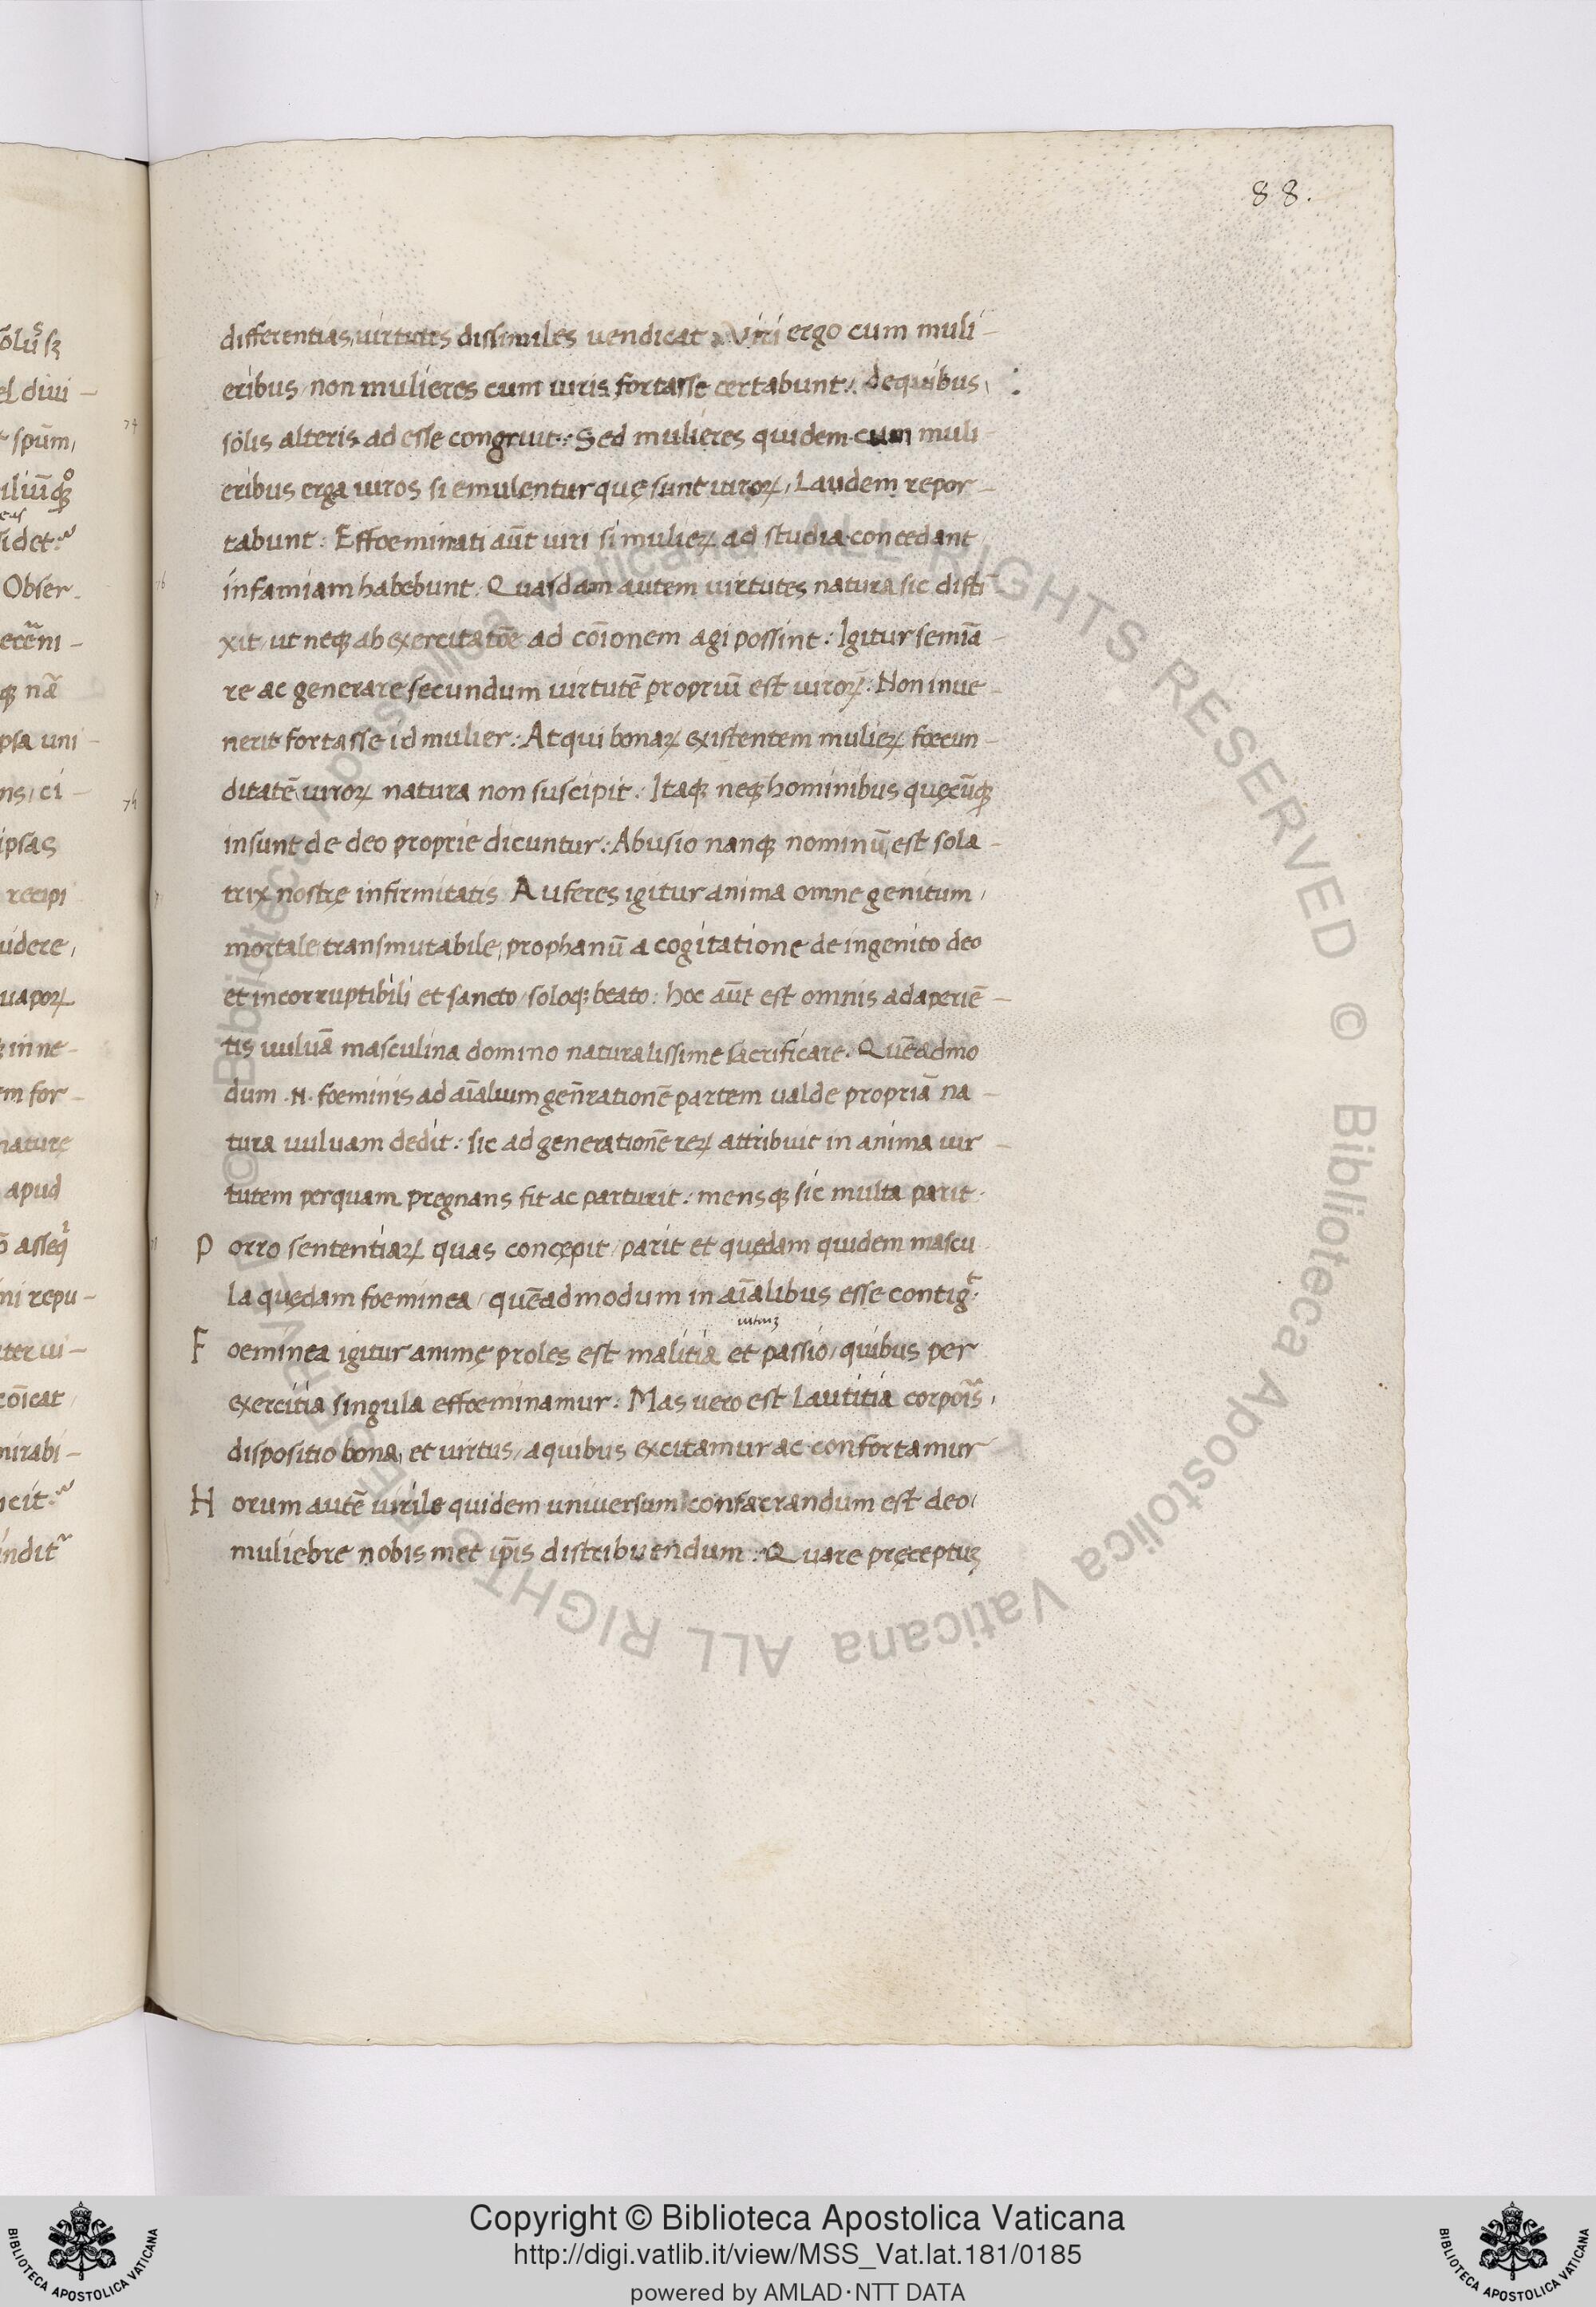 88.
differentias, virtutes dissimiles vendicat. Viri ergo cum muli-
eribus, non mulieres cum viris fortasse certabunt: de quibus,
solis alteris adesse congruit: Sed mulieres quidem cum muli-
eribus erga viros si emulentur quę sunt virorꝝ, Laudem repor-
tabunt: Effoeminati aūt viri si mulierꝝ ad studia concedant
infamiam habebunt. Quasdam autem virtutes natura sic disti
xit, ut neqꝫ ab exercitatōe ad cōionem agi possint: Igitur semīa-
re ac generare secundum virtutē propriū est virorꝝ: Non inve-
nerit fortasse id mulier: Atqui bonaꝝ existentem mulierꝝ foecun-
ditatē virorꝝ natura non suscipit: Itaqꝫ neqꝫ hominibus quęcūqꝫ
insunt de deo proprie dicuntur: Abusio nanqꝫ nominū est sola-
trix nostrę infirmitatis Auferes igitur anima omne genitum,
mortale, transmutabile, prophanū a cogitatione de ingenito deo
et incorruptibili et sancto, soloqꝫ beato: hoc aūt est omnis adaperiē-
tis vulvā masculina domino naturalissime sacrificare. Quēadmo
dum .N. foeminis ad aīalium gen̄rationē partem valde propriā na-
tura vulvam dedit: sic ad generationē rerꝝ attribuit in anima vir-
tutem perquam pregnans fit ac parturit: mensqꝫ sic multa parit.
Porro sententiaꝝ quas concępit, parit et quędam quidem mascu
la quędam foeminea, quēadmodum in aīalibus esse contigᵗ.
Foeminea igitur animę proles est malitia et passio, quibus per
exercitia singula effoeminamur: Mas vero est Lautitia corpoīs,
dispositio bona, et virtus, a quibus excitamur ac confortamur
Horum autē virile quidem universum consacrandum est deo,
muliebre nobis met ip̄is distribuendum: Quare pręceptuꝫ
Copyright © Biblioteca Apostolica Vaticana
http://digi.vatlib.it/view/MSS_Vat.lat.181/0185
powered by AMLAD·NTT DATA